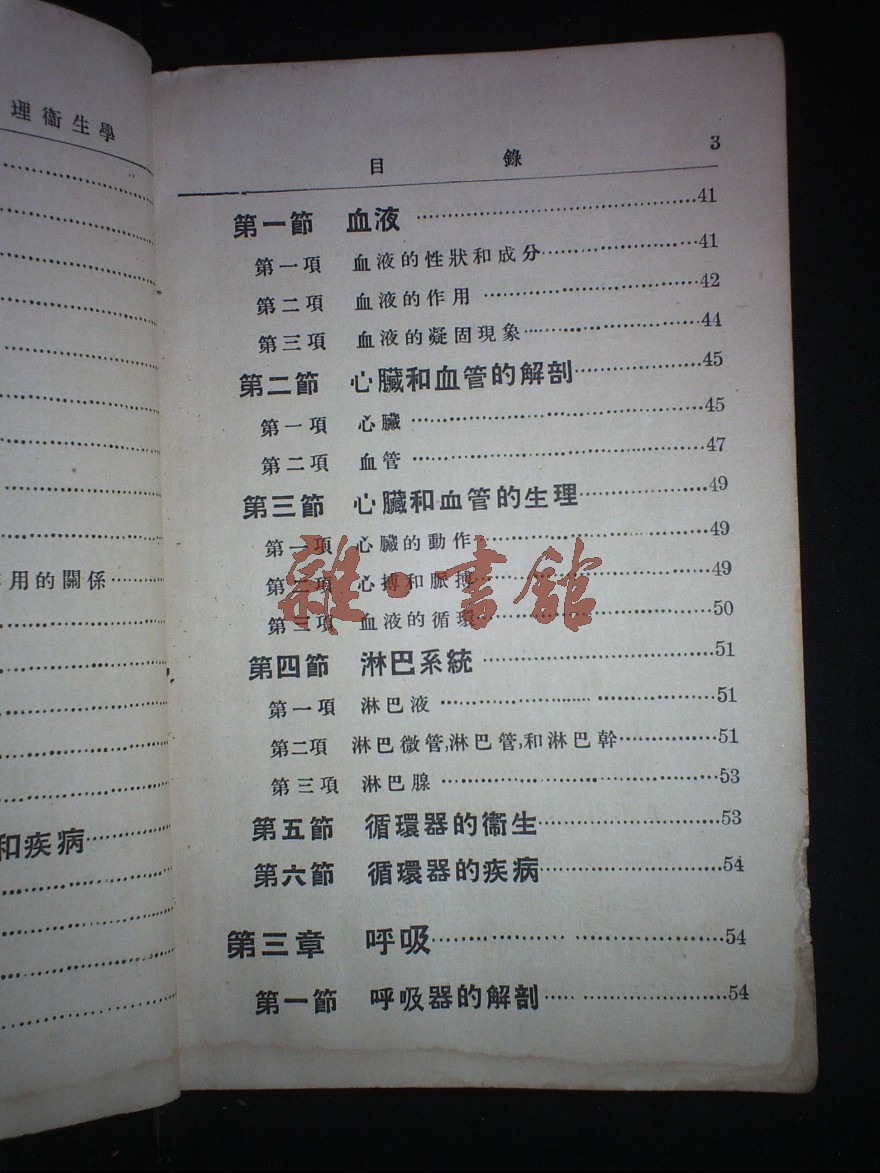 理衞生學
用的關係
和疾病
目錄 3
第一節 血液 41
第一項 血液的性狀和成分 41
第二項 血液的作用 42
第三項 血液的凝固現象 44
第二節 心臟和血管的解剖 45
第一項 心臟 45
第二項 血管 47
第三節 心臟和血管的生理 49
第一項 心臟的動作 49
第二項 心搏和脈搏 49
第三項 血液的循環 50
雜·書舘
第四節 淋巴系統 51
第一項 淋巴液 51
第二項 淋巴微管,淋巴管,和淋巴幹 51
第三項 淋巴腺 53
第五節 循環器的衞生 53
第六節 循環器的疾病 54
第三章 呼吸 54
第一節 呼吸器的解剖 54